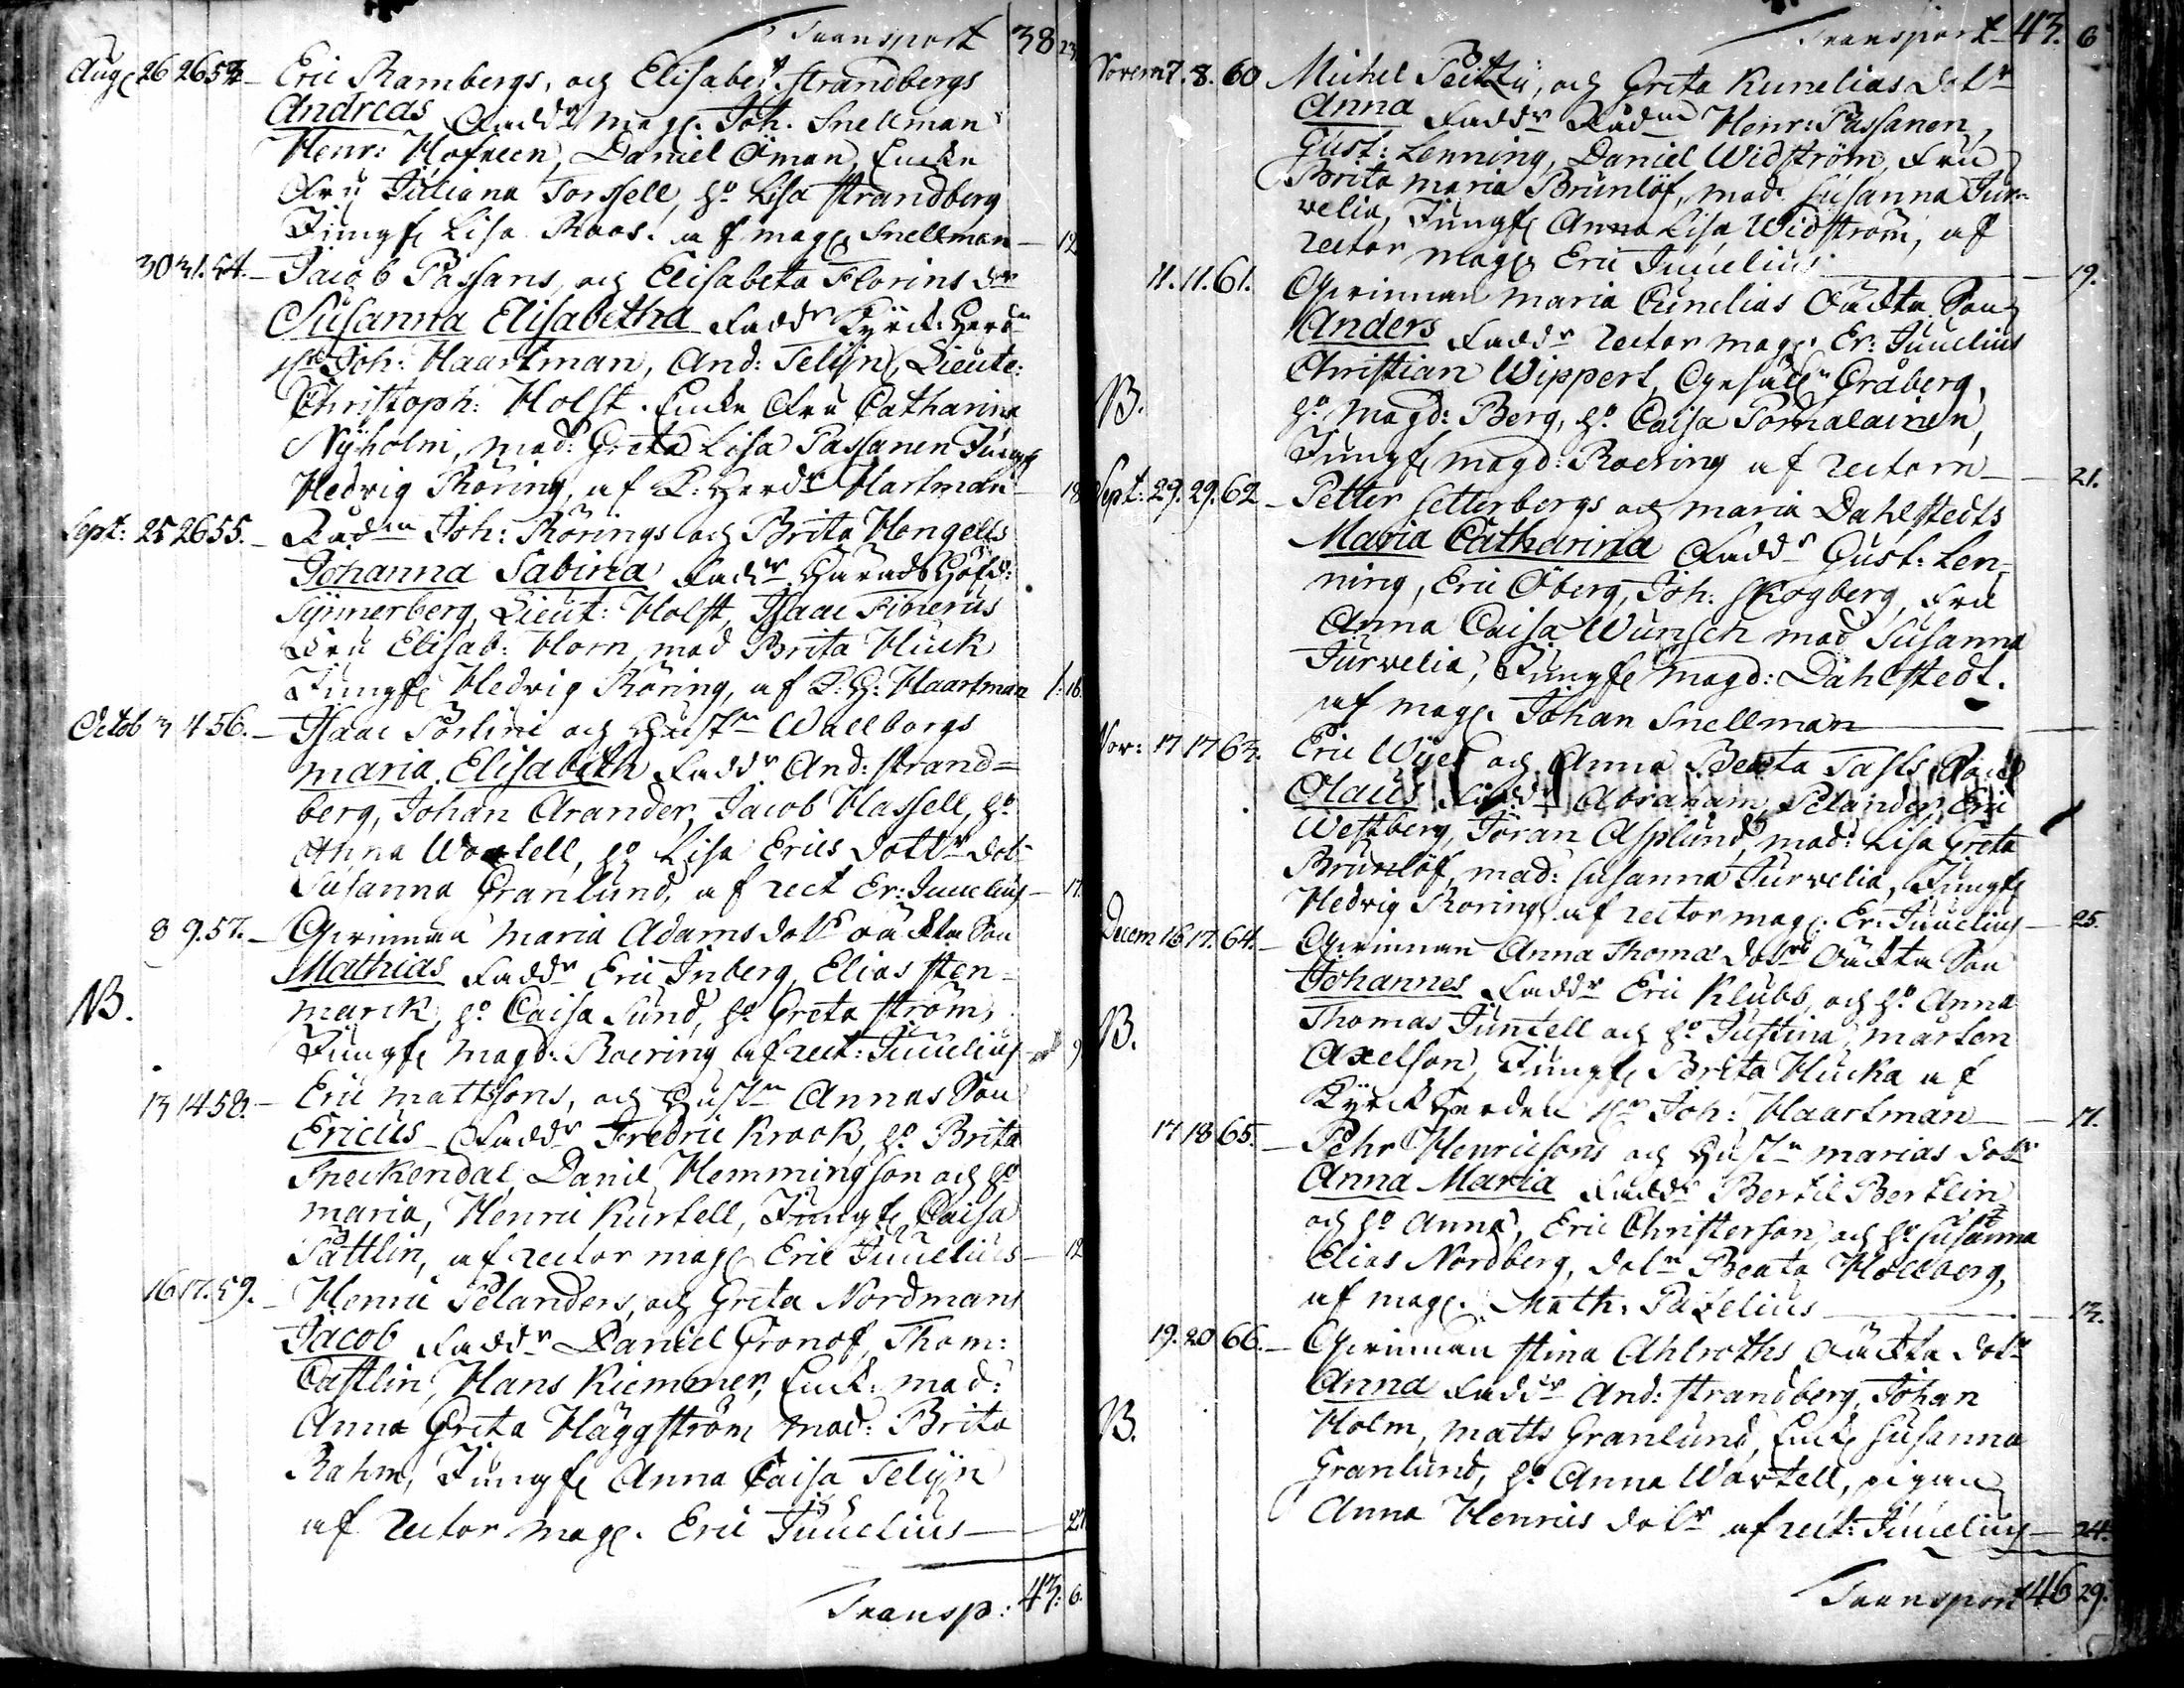 Transport 38 23
Aug 26 26 53 Eric Rambergs, och Elisabet Strandbergs
Andreas Fadd:r mag. Joh. Snellman
Henr: Hofreen, Daniel Öman, Enkn
Fru Juliana Torssell, h:o Lisa Strandberg
Jungf. Lisa Roos. af mag. Snellman — 12
30 31. 54. Jacob Passans, och Elisabeta Florins
Susanna Elisabetha Fadd:r Kyrck Herd
H:r Joh: Haartman, And: Telijn, Lieute:
Christoph: Holst. Enkn Fru Catharina
Nyholm, mad: Greta Lisa Passanen Jungf
Hedvig Röring, af K: Herd:n Hartman — 18
Sept: 25 26 55. Rådm Joh: Rörings och Brita Hongells
Johanna Sabina Fad:r Häradshöfd:
Synnerberg, Lieut: Holst, Isaac Finerus
Fru Elisab: Horn, mad Brita Huck
Jungf. Hedvig Röring, af K: H: Haartman 1: 16.
Octob 3 4 56. Isaac Portini och Hust:n Wallborgs
Maria Elisabeth Fadd:r And: Strand=
berg, Johan Arander, Jacob Hassell, h:o
Anna Wortell, h:o Lisa Erics dott:r
Susanna Granlund, af rect Er: Juvelius — 17.
8 9. 57. Qvinnan Maria Adams dot:r oäckta Son
Mathias Fadd:r Eric Inberg, Elias Sten=
NB. marck, h:o Caisa Sund, h:o Greta Ström,
Jungf. Magd: Roering af rect: Juvelius 9
13 14 58. Eric Mattssons, och Hust:n Annas Son
Ericus Fadd:r Fredric Krook, h:o Brita
Sneckendal, Daniel Hemmingson och h:o
Maria, Henric Kurtell, Jungf. Caisa
Sattlin, af rector mag. Eric Juvelius — 12
16 17. 59. Henric Pelanders, och Greta Nordmans
Jacob Fadd:r Daniel Gronof, Thom:
Castlin, Hans Kiemmer, Enk. mad:
Anna Greta Häggström mad: Brita
Rahm, Jungf. Anna Caisa Telijn
af rector mag. Eric Juvelius — 27
Transp: 43: 6.
Transport 43. 6
Novem 7. 8. 60 Michel, och Greta Kunelias dot:r
Anna Fadd:r Rådm Henr: Passanen,
Gust: Lenning, Daniel Widström, Fru
Brita Maria Brunlöf, mad: Susanna Jur=
velia, Jungf. Anna Lisa Widström, af
rector mag. Eric Juvelius — 19.
11. 11. 61. Qvinnan Maria Cunelias Oäckta Son
Anders Fadd:r rector mag. Er: Juvelius
Christian Wippert, Gråberg,
NB. h:o Magd: Berg, h:o Caisa Pornalainen,
Jungf. Magd: Roering af rectorn — 21.
Sept: 29. 29. 62 Petter Setterbergs och Maria Dahlstedts
Maria Catharina Fadd:r Gust: Len=
ning, Eric Öberg, Joh: Skogberg, Fru
Anna Caisa Wunsch mad Susanna
Jurvelia, Jungf. Magd: Dahlstedt.
af mag. Johan Snellman —
Nov: 17 17 63. Eric och Anna Beata
Olaus Fadd:r Abraham Pelander, Eric
Westberg, Jöran Asplund, mad: Lisa Greta
Brunlöf, mad: Susanna Jurvelia, Jungf
Hedvig Roring af rector mag. Er: Juvelius — 25.
Decem 16 17. 64. Qvinnan Anna Thomas dot:rs Oäckta Son
Johannes Fadd:r Eric Klubb, och h:o Anna
NB. Thomas Juntell och h:o Justina, Mårten
Axelson, Jungf. Brita Hucka af
Kyrckherden H:r Joh: Haartman — 17.
17 18 65. Pehr Henricsons och Hust:n Marias dot:r
Anna Maria Fadd:r Bertil Bertlin
och h:o Anna, Eric Christerson, och h:o Susanna
Elias Nordberg, dot:n Beata Hollberg,
af mag. Math: Pazelius — 13.
19. 20 66. Qvinnan Stina Ahlroths Oäckta dot:r
Anna Fadd:r And: Strandberg, Johan
NB. Holm, Matts Granlund, Enk. Susanna
Granlund, h:o Anna Wartell, pigan
Anna Henrics dot:r af rect: Juvelius — 24.
Transport 46 29.